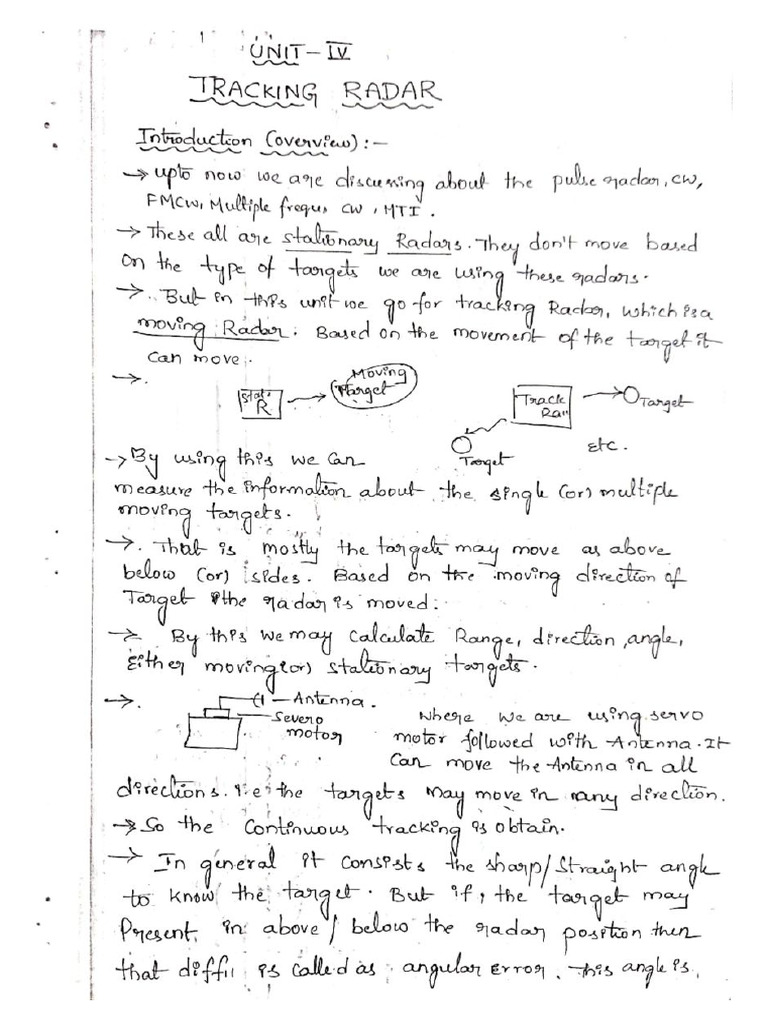 UNIT-IV
TRACKING RADAR
Introduction (overview) :-
→ upto now we are discussing about the pulse radar, CW,
FMCW, Multiple frequ, CW, MTI.
→ These all are stationary Radars. They don't move based
on the type of targets we are using these radars.
→. But in this unit we go for tracking Radar, which is a
moving Radar. Based on the movement of the target it
can move.
→.
Stat. R → Moving Target
Track Ra → Target
Target
etc.
→ By using this we can
measure the information about the single (or) multiple
moving targets.
→. That is mostly the targets may move as above
below (or) sides. Based on the moving direction of
Target the radar is moved.
→ By this we may calculate Range, direction, angle,
Either moving (or) stationary targets.
→.
Antenna.
Severo
motor
Where we are using servo
motor followed with Antenna. It
can move the Antenna in all
directions. i.e the targets may move in any direction.
→ So the continuous tracking is obtain.
→ In general it consists the sharp/straight angle
to know the target. But if, the target may
Present, in above / below the radar position then
that diff is called as angular error. This angle is,